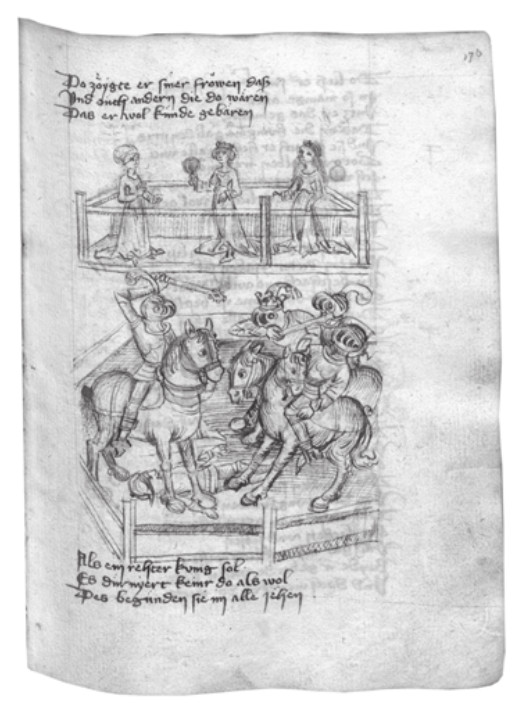 Do zoͤygte er siner frowen daß
Vnd ouch andern die do waren
Das er wol kunde gebaren
Als ein rehter kung sol
Es du nyert keinr do als wol
Des begunden sie in alle jehen